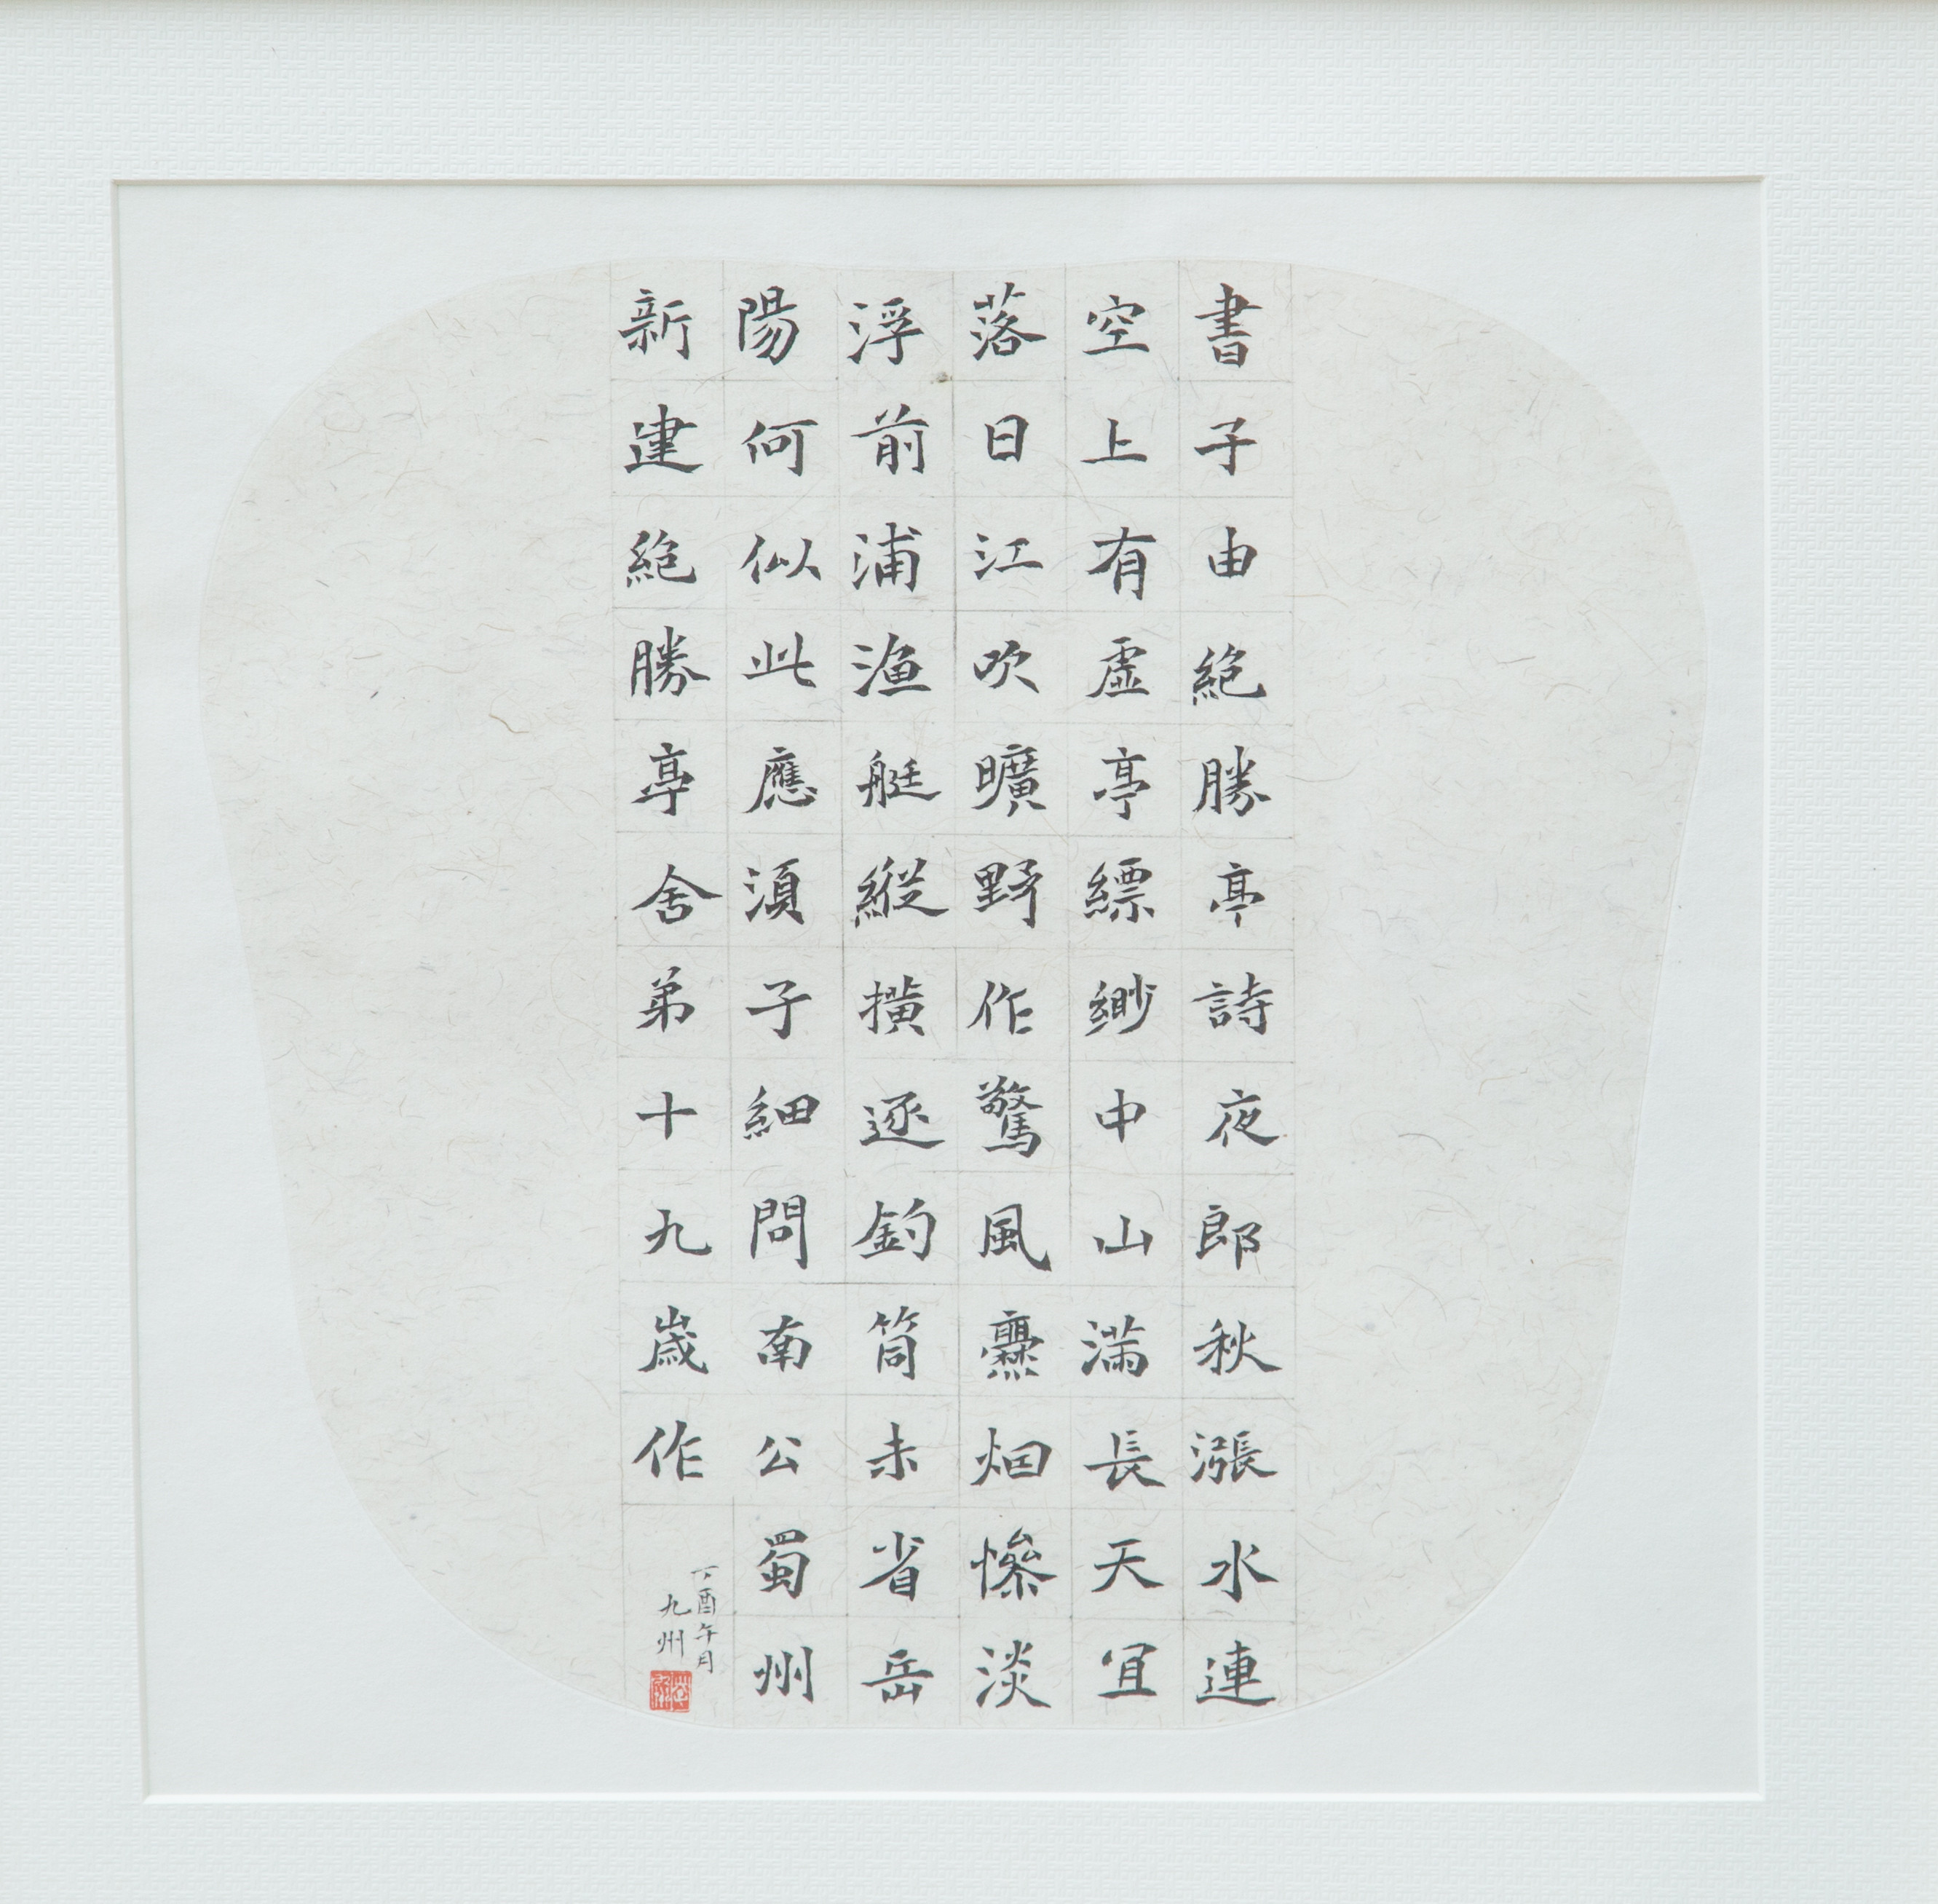 書子由絕勝亭詩夜郎秋漲水連
空上有虛亭縹緲中山滿長天宜
落日江吹曠野作驚風爨烟慘淡
浮前浦漁艇縱撗逐釣筒未省岳
陽何似此應湏子細問南公蜀州
新建絕勝亭舍弟十九歲作
丁酉午月
九州